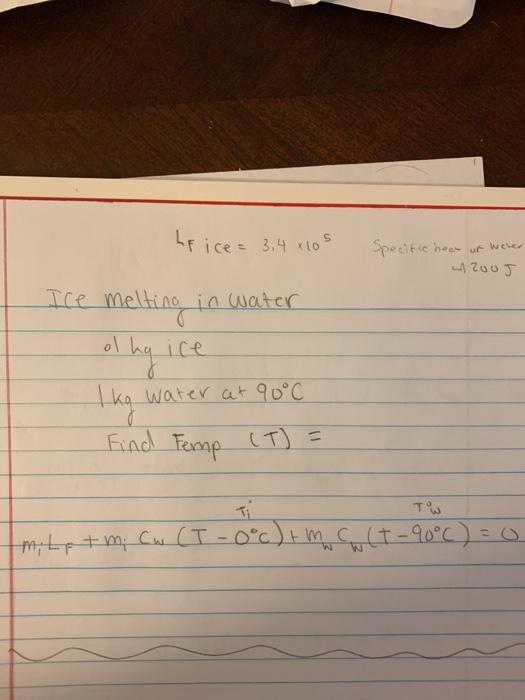 LF ice = 3.4 x10⁵
Specific heat of water
4200J
Ice melting in water
01 kg ice
1 kg water at 90°C
Find Temp (T) =
Ti Tw
miLF + mi Cw (T - 0°C) + mw Cw (T - 90°C) = 0